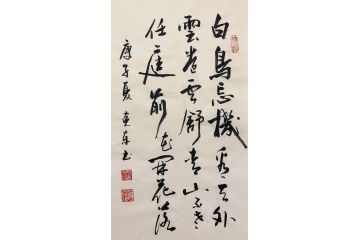 白鳥忘機看天外
雲卷云舒青山不老
任庭前花開花落
庚子夏